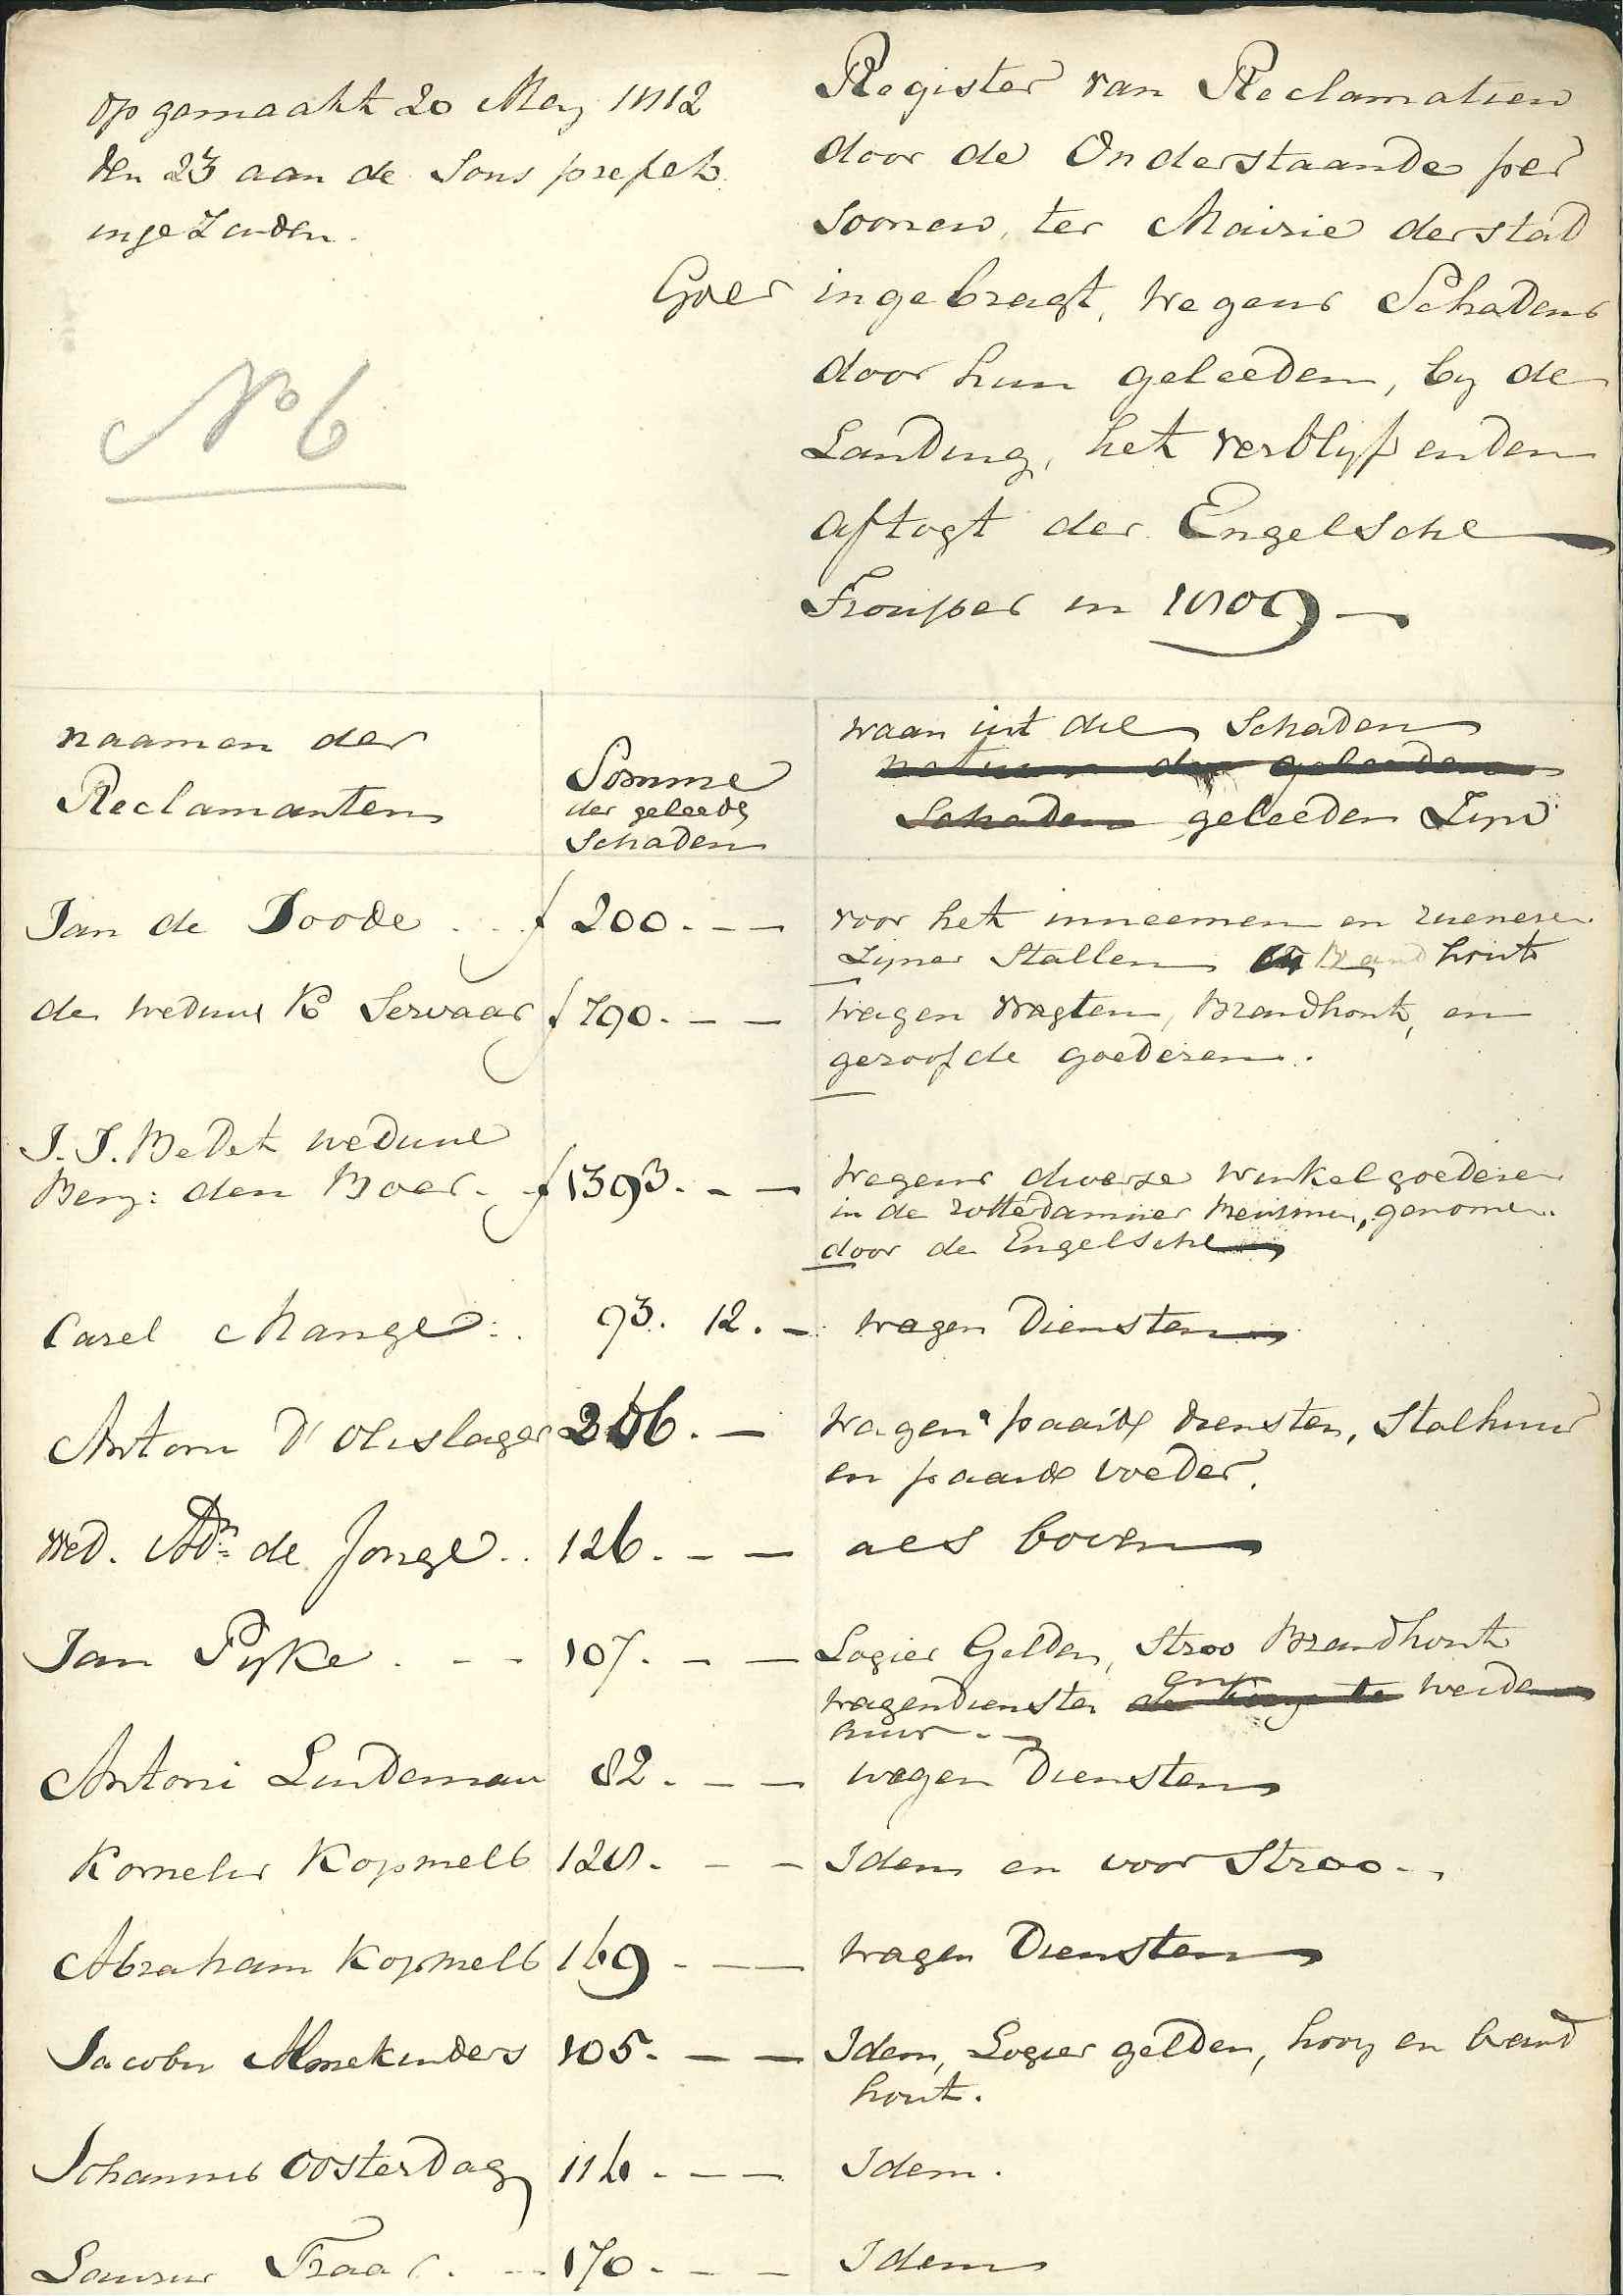 opgemaakt 20 Mey 1812
den 23 aan de Sous prefet
ingezonden.
No 6
Register van Reclamatien
door de Onderstaande per
soonen, ter Mairie der stad
Goes ingebragt, wegens Schadens
door hun geleeden, by de
Landing, het verblyf en den
aftogt der Engelsche
Troupes in 1809
naamen der
Reclamanten
Somme
der geleede
Schaden
waar uit die Schaden
natuur der geleeden
Schaden geleeden Zyn
Jan de Joode . . f 200. - - voor het inneemen en
Zyner Stallen Brandhout
de weduwe Ko Servaas f 790. - - wagen vragten, Brandhout, en
geroofde goederen.
J. J. Bedet weduwe
Berg: den Boer. f 1393. - - Wegens diverse winkelgoederen
in de rotterdammer genomen
door de Engelsche
Carel Mange . 93. 12. - wagen Diensten
Antoni D'Olislager 386. - Wagen paarde diensten, Stalhuur
en paarde voeder.
Wed. Adn de Jonge . . 126. - - als boven
Jan Pyke . - - 107. - - Logies Gelden, Stroo Brandhout
wagendiensten en weide
huur. -
Antoni Lindeman 82. - - wagen Diensten
Kornelis Kopmels 128. - - Idem en voor Stroo -
Abraham Kopmels 169 - - wagen Diensten
Jacobus Minnekinders 105. - - Idem, Logies gelden, hooy en brand
hout.
Johannis Oosterdag 116 . - - Idem.
Laurus Fraas . - - 170. - - Idem